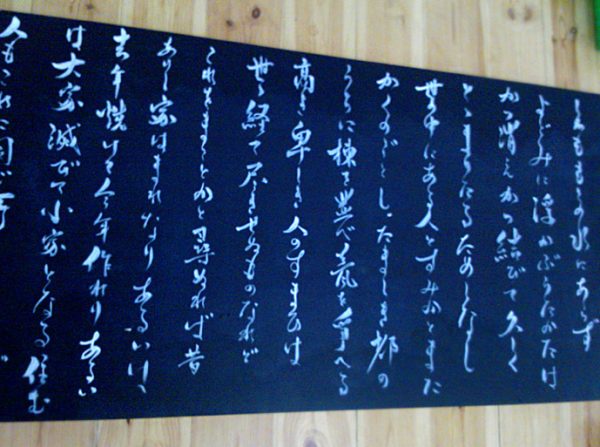 しかももとの水にあらず
よどみに浮かぶうたかたは
かつ消えかつ結びて久しく
とゞまりたるためしなし
世中にある人とすみかとまた
かくのごとしたましき都の
うちに棟を並べ甍を争へる
高き卑しき人のすまひは
世々経て尽きせぬものなれど
これをまことかと尋ぬれば昔
ありし家はまれなりあるいは
去年焼けて今年作れりあるい
は大家滅びて小家となる住む
人もこれに同じ